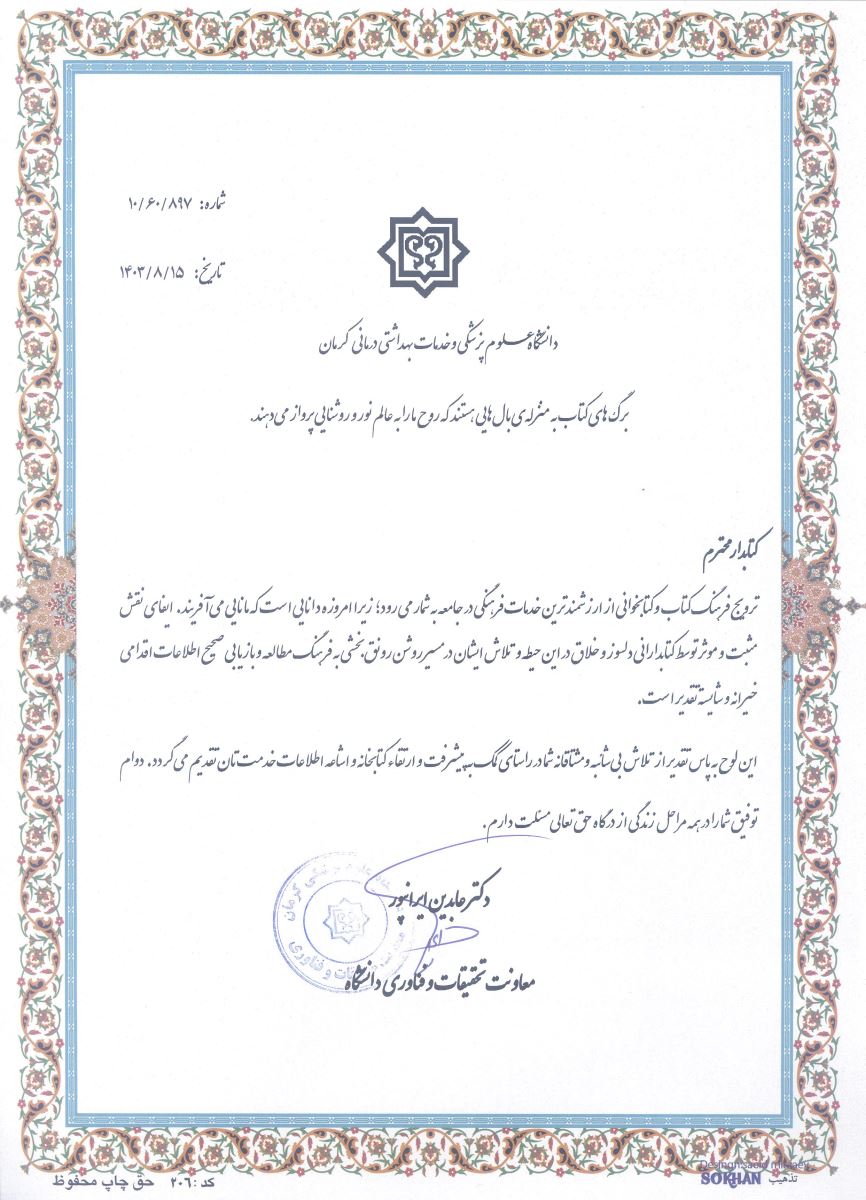 شماره: ۱۰/۶۰/۸۹۷
تاریخ: ۱۴۰۳/۸/۱۵
دانشگاه علوم پزشکی و خدمات بهداشتی درمانی کرمان
برگ های کتاب به منزله ی بال هایی هستند که روح ما را به عالم نور و روشنایی پرواز می دهند.
کتابدار محترم
ترویج فرهنگ کتاب و کتابخوانی از ارزشمندترین خدمات فرهنگی در جامعه به شمار می رود؛ زیرا امروزه دانایی است که مانایی می آفریند. ایفای نقش
مثبت و موثر توسط کتابدارانی دلسوز و خلاق در این حیطه و تلاش ایشان در مسیر روشن رونق بخشی به فرهنگ مطالعه و بازیابی صحیح اطلاعات اقدامی
خیرانه و شایسته تقدیر است.
این لوح به پاس تقدیر از تلاش بی شائبه و مشتاقانه شما در راستای کمک به پیشرفت و ارتقاء کتابخانه و اشاعه اطلاعات خدمت تان تقدیم می گردد. دوام
توفیق شما را در همه مراحل زندگی از درگاه حق تعالی مسئلت دارم.
دکتر عابدین ایرانپور
معاونت تحقیقات و فناوری دانشگاه
کد: ۲۰۶ حق چاپ محفوظ
تذهیب SOKHAN